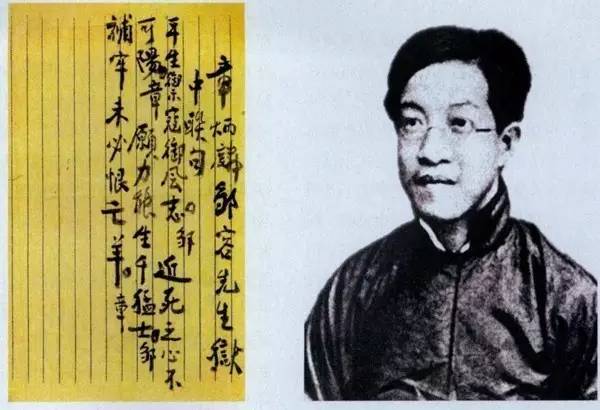 章炳麟鄒容先生獄
中聯句
平生禦寇御風志鄒近死之心不
可陽章願力能生千猛士鄒
補牢未必恨亡羊章